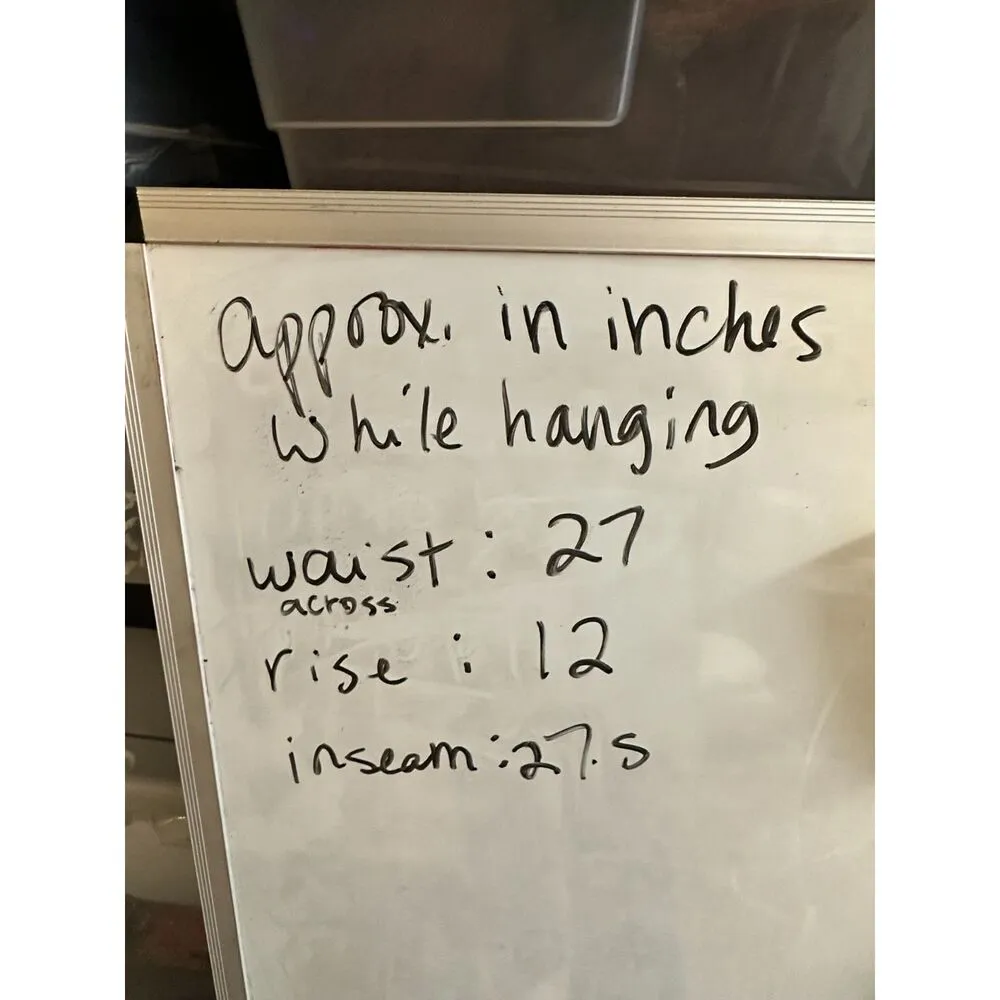 approx. in inches
while hanging
waist: 27
across
rise: 12
inseam: 27.5